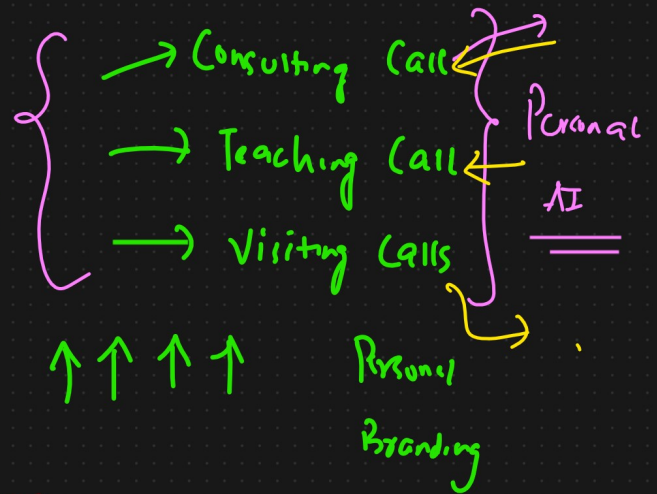 Consulting Call
Teaching Call
Visiting Calls
Personal
AI
Personal
Branding